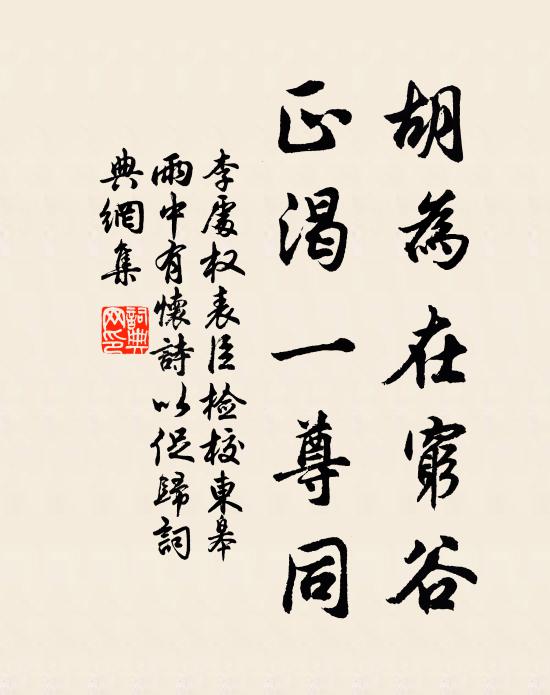 胡為在窮谷
正渴一尊同
李處权表臣检校東皋
雨中有懷詩以促歸詞
典網集
詞典网印